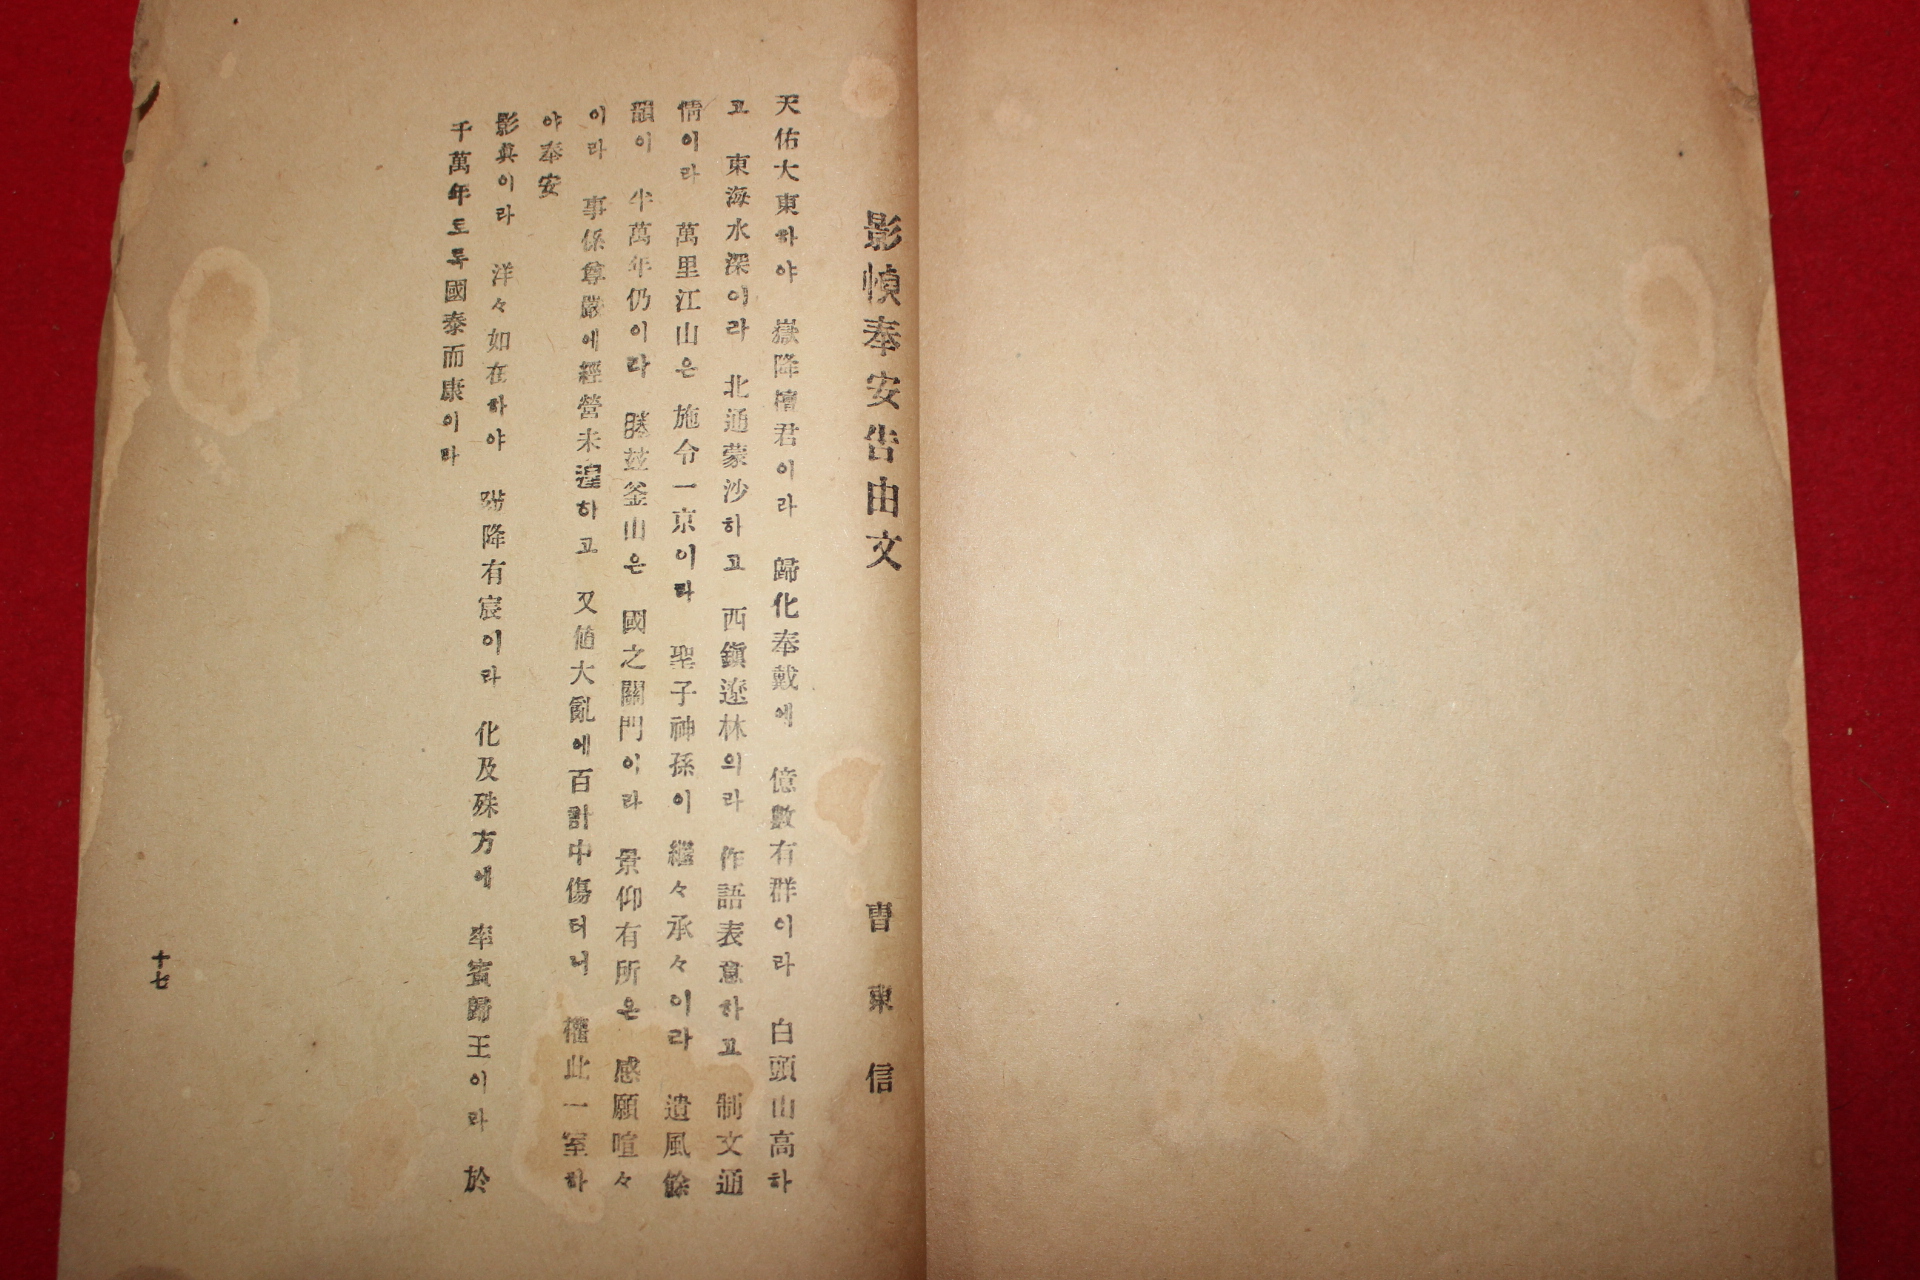 影幀奉安告由文 曺東信
天佑大東하야 嶽降檀君이라 歸化奉戴에 億數有群이라 白頭山高하
고 東海水深이라 北通蒙沙하고 西鎭遼林의라 作語表意하고 制文通
情이라 萬里江山은 施令一京이라 聖子神孫이 繼々承々이라 遺風餘
韻이 半萬年仍이라 睠玆釜山은 國之關門이라 景仰有所은 感願喧々
이라 事係尊嚴에 經營未遑하고 又値大亂에 百計中傷터니 權此一室하
야 奉安
影眞이라 洋々如在하야 陟降有宸이라 化及殊方에 率賓歸王이라 於
千萬年도록 國泰而康이라
十七